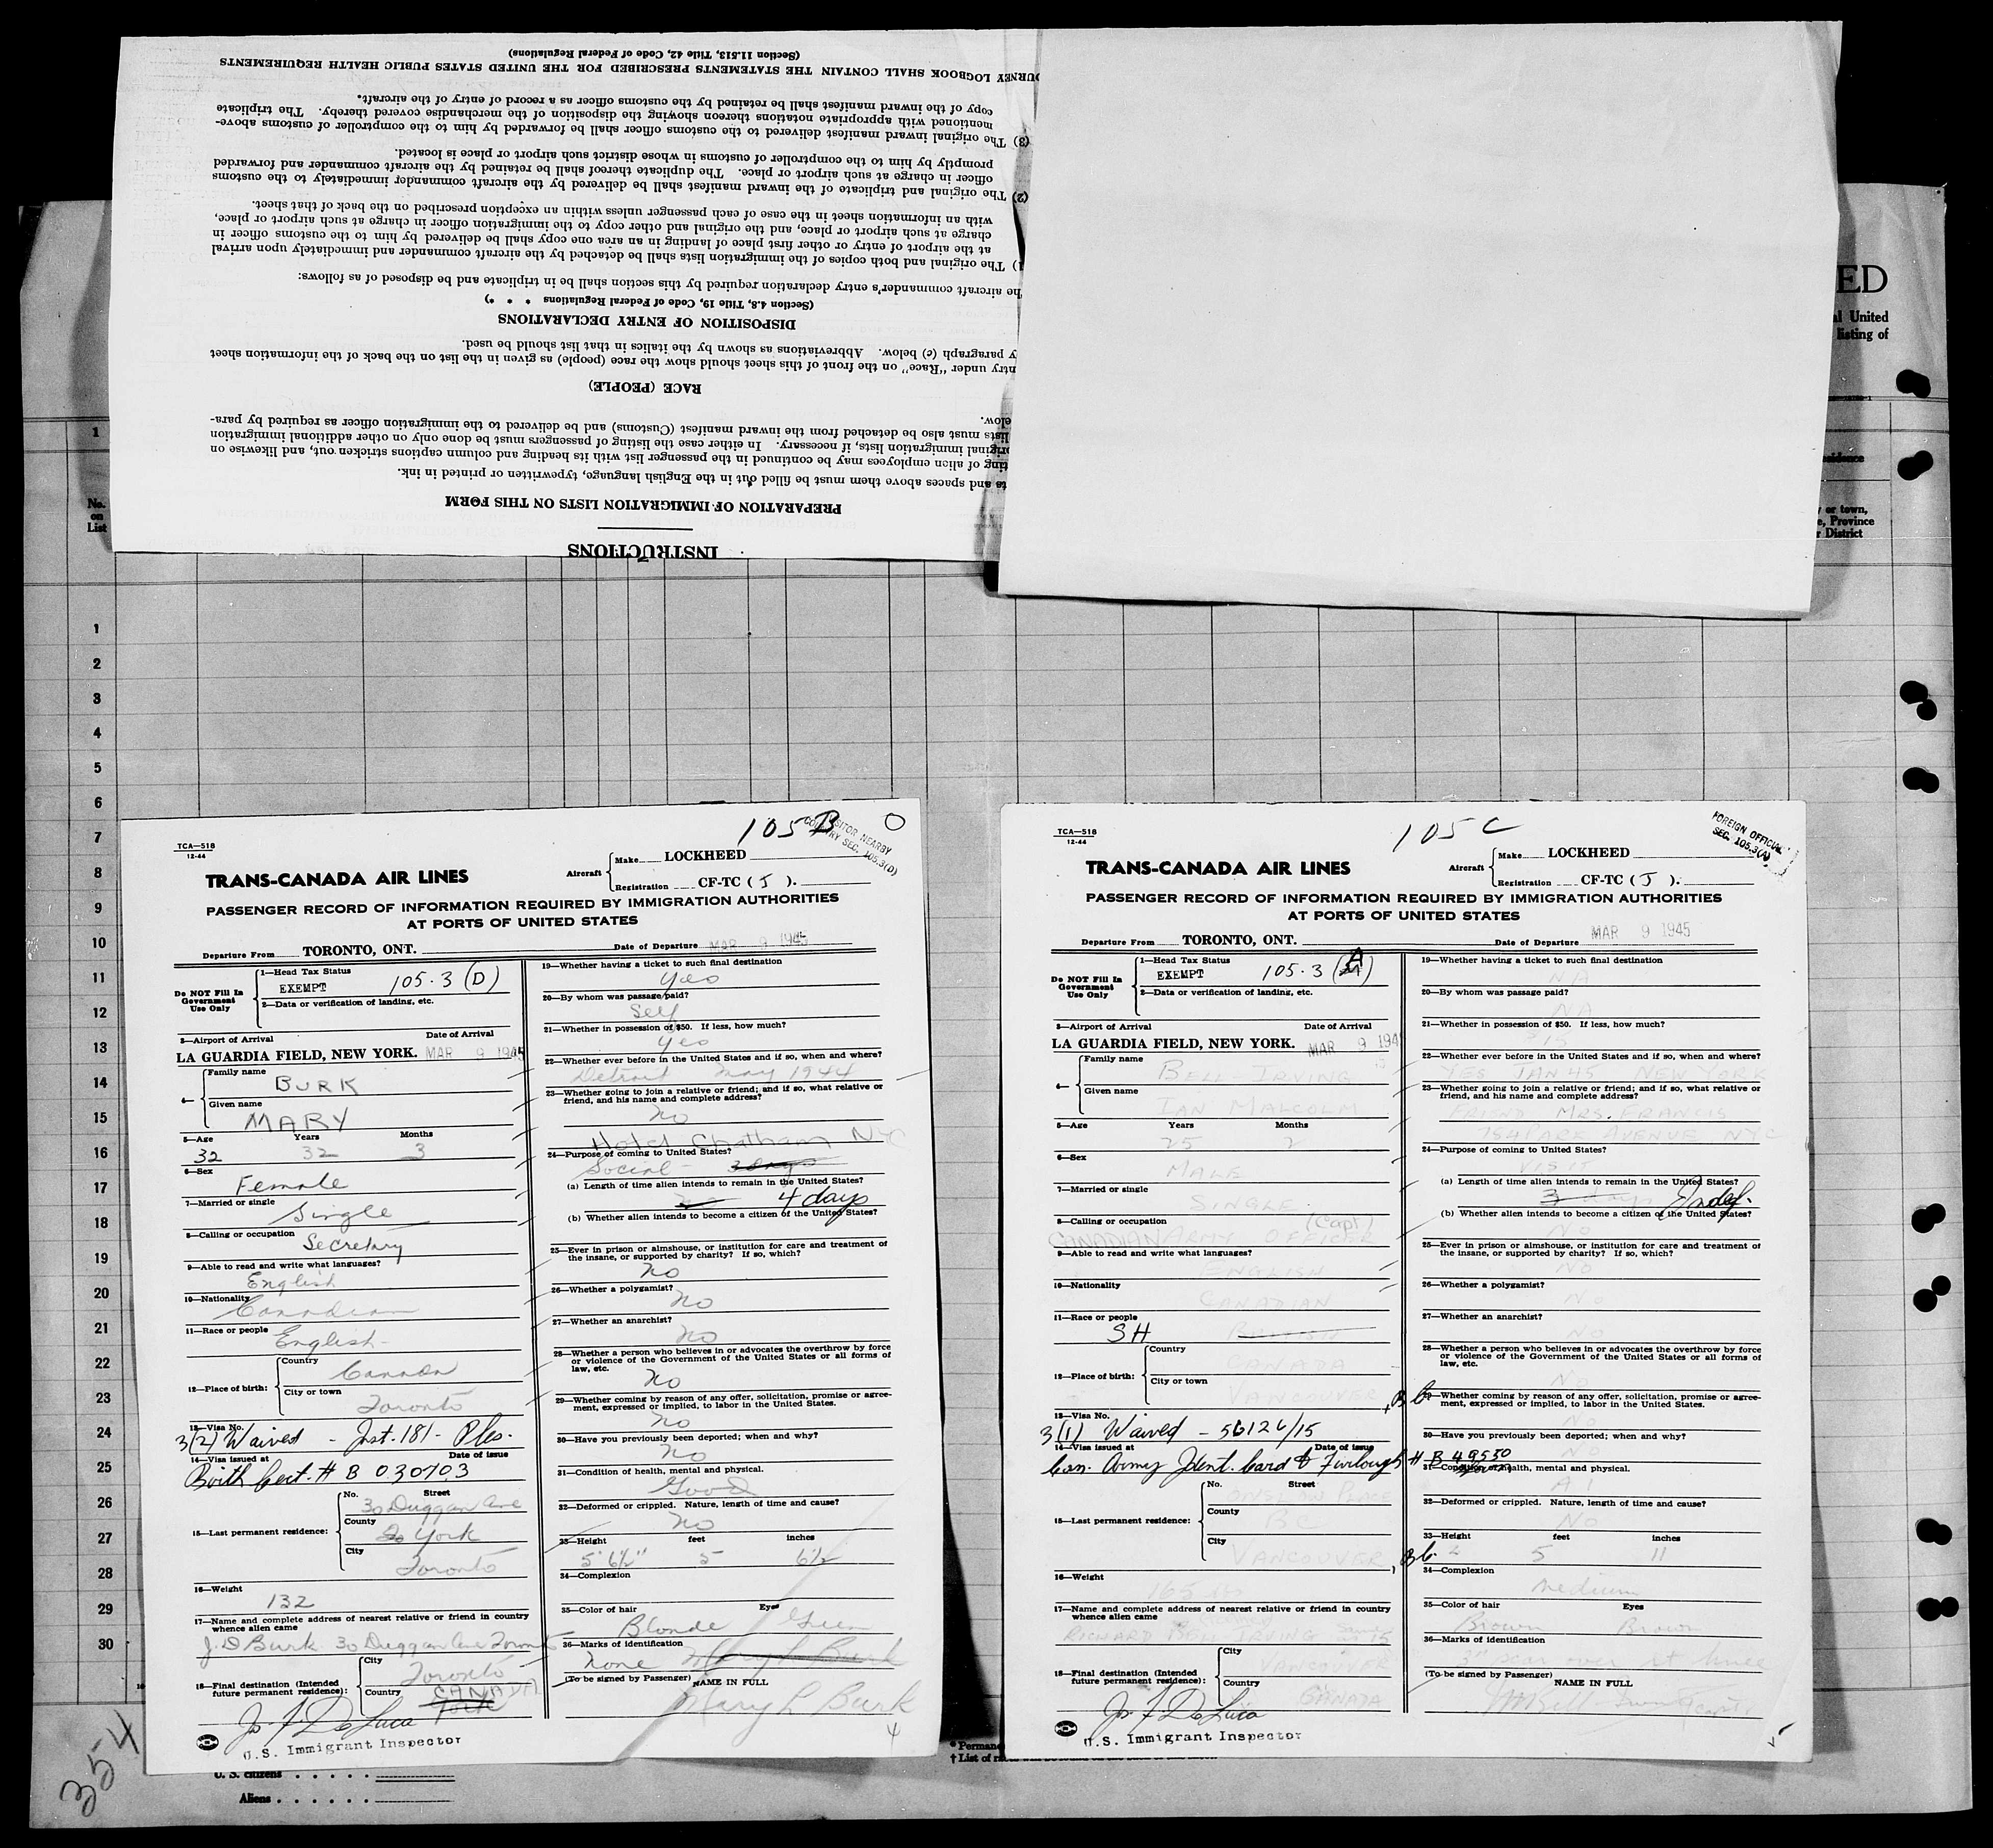 (Section 11.513, Title 42, Code of Federal Regulations)
URNEY LOGBOOK SHALL CONTAIN THE STATEMENTS PRESCRIBED FOR THE UNITED STATES PUBLIC HEALTH REQUIREMENTS
copy of the inward manifest shall be retained by the customs officer as a record of entry of the aircraft.
mentioned with appropriate notations thereon showing the disposition of the merchandise covered thereby. The triplicate
(3) The original inward manifest delivered to the customs officer shall be forwarded by him to the comptroller of customs above-
promptly by him to the comptroller of customs in whose district such airport or place is located.
officer in charge at such airport or place. The duplicate thereof shall be retained by the aircraft commander and forwarded
(2) The original and triplicate of the inward manifest shall be delivered by the aircraft commander immediately to the customs
with an information sheet in the case of each passenger unless within an exception prescribed on the back of that sheet.
charge at such airport or place, and the original and other copy to the immigration officer in charge at such airport or place,
at the airport of entry or other first place of landing in an area one copy shall be delivered by him to the customs officer in
1) The original and both copies of the immigration lists shall be detached by the aircraft commander and immediately upon arrival
he aircraft commander's entry declaration required by this section shall be in triplicate and be disposed of as follows:
(Section 4.8, Title 19, Code of Federal Regulations * * *)
DISPOSITION OF ENTRY DECLARATIONS
y paragraph (c) below. Abbreviations as shown by the italics in that list should be used.
ntry under "Race" on the front of this sheet should show the race (people) as given in the list on the back of the information sheet
RACE (PEOPLE)
elow.
lists must also be detached from the inward manifest (Customs) and be delivered to the immigration officer as required by para-
original immigration lists, if necessary. In either case the listing of passengers must be done only on other additional immigration
ting of alien employees may be continued in the passenger list with its heading and column captions stricken out, and likewise on
ts and spaces above them must be filled out in the English language, typewritten or printed in ink.
PREPARATION OF IMMIGRATION LISTS ON THIS FORM
INSTRUCTIONS
ED
al United
listing of
sidence
y or town,
e, Province
r District
1
No.
on
List
1
2
3
4
5
6
7
8
9
10
11
12
13
14
15
16
17
18
19
20
21
22
23
24
25
26
27
28
29
30
105 B
VISITOR NEARBY
COUNTRY SEC. 105.3(D)
TCA—518
12-44
TRANS-CANADA AIR LINES
Aircraft
Make LOCKHEED
Registration CF-TC ( J ).
PASSENGER RECORD OF INFORMATION REQUIRED BY IMMIGRATION AUTHORITIES
AT PORTS OF UNITED STATES
Departure From TORONTO, ONT. Date of Departure MAR 9 1945
Do NOT Fill In
Government
Use Only
1—Head Tax Status
EXEMPT 105.3 (D)
2—Data or verification of landing, etc.
3—Airport of Arrival Date of Arrival
LA GUARDIA FIELD, NEW YORK. MAR 9 1945
4—
Family name
BURK
Given name
MARY
5—Age Years Months
32 32 3
6—Sex
Female
7—Married or single
Single
8—Calling or occupation
Secretary
9—Able to read and write what languages?
English
10—Nationality
Canadian
11—Race or people
English
12—Place of birth:
Country
Canada
City or town
Toronto
13—Visa No.
3(2) Waived - Inst. 181 - Ples.
14—Visa issued at Date of issue
Birth Cert. # B 030703
15—Last permanent residence:
No. Street
30 Duggan Ave
County
York
City
Toronto
16—Weight
132
17—Name and complete address of nearest relative or friend in country
whence alien came
J. D Burk 30 Duggan Ave Toronto
18—Final destination (Intended
future permanent residence):
City
Toronto
Country
CANADA
York
Jos. F. DeLuca
U.S. Immigrant Inspector
19—Whether having a ticket to such final destination
Yes
20—By whom was passage paid?
Self
21—Whether in possession of $50. If less, how much?
Yes
22—Whether ever before in the United States and if so, when and where?
Detroit May 1944
23—Whether going to join a relative or friend; and if so, what relative or
friend, and his name and complete address?
No
Hotel Chatham NYC
24—Purpose of coming to United States?
Social - 3 days
(a) Length of time alien intends to remain in the United States?
no 4 days
(b) Whether alien intends to become a citizen of the United States?
25—Ever in prison or almshouse, or institution for care and treatment of
the insane, or supported by charity? If so, which?
No
26—Whether a polygamist?
No
27—Whether an anarchist?
No
28—Whether a person who believes in or advocates the overthrow by force
or violence of the Government of the United States or all forms of
law, etc.
No
29—Whether coming by reason of any offer, solicitation, promise or agree-
ment, expressed or implied, to labor in the United States.
No
30—Have you previously been deported; when and why?
No
31—Condition of health, mental and physical.
Good
32—Deformed or crippled. Nature, length of time and cause?
No
33—Height feet inches
5' 6½" 5 6½
34—Complexion
35—Color of hair Eyes
Blonde Green
36—Marks of identification
None Mary L Burk
(To be signed by Passenger) NAME IN FULL
Mary L Burk
4
105 C
FOREIGN OFFICIAL
SEC. 105.3(A)
TCA—518
12-44
TRANS-CANADA AIR LINES
Aircraft
Make LOCKHEED
Registration CF-TC ( J ).
PASSENGER RECORD OF INFORMATION REQUIRED BY IMMIGRATION AUTHORITIES
AT PORTS OF UNITED STATES
Departure From TORONTO, ONT. Date of Departure MAR 9 1945
Do NOT Fill In
Government
Use Only
1—Head Tax Status
EXEMPT 105.3 (A)
2—Data or verification of landing, etc.
3—Airport of Arrival Date of Arrival
LA GUARDIA FIELD, NEW YORK. MAR 9 194
4—
Family name
BELL IRVING
Given name
IAN MALCOLM
5—Age Years Months
25 2
6—Sex
MALE
7—Married or single
SINGLE
8—Calling or occupation (Capt)
CANADIAN ARMY OFFICER
9—Able to read and write what languages?
ENGLISH
10—Nationality
CANADIAN
11—Race or people
SH
12—Place of birth:
Country
CANADA
City or town
VANCOUVER, B.C.
13—Visa No.
3(1) Waived - 56126/15
14—Visa issued at Date of issue
Can. Army Ident. Card & Furlough # B 49550
15—Last permanent residence:
No. Street
County
BC
City
VANCOUVER, B.C.
16—Weight
165 lbs
17—Name and complete address of nearest relative or friend in country
whence alien came
RICHARD BELL IRVING
18—Final destination (Intended
future permanent residence):
City
VANCOUVER
Country
CANADA
Jos. F. DeLuca
U.S. Immigrant Inspector
19—Whether having a ticket to such final destination
NA
20—By whom was passage paid?
NA
21—Whether in possession of $50. If less, how much?
22—Whether ever before in the United States and if so, when and where?
YES JAN 45 NEW YORK
23—Whether going to join a relative or friend; and if so, what relative or
friend, and his name and complete address?
FRIEND MRS. FRANCIS
PARK AVENUE NYC
24—Purpose of coming to United States?
VISIT
(a) Length of time alien intends to remain in the United States?
3 days Indef.
(b) Whether alien intends to become a citizen of the United States?
No
25—Ever in prison or almshouse, or institution for care and treatment of
the insane, or supported by charity? If so, which?
No
26—Whether a polygamist?
No
27—Whether an anarchist?
No
28—Whether a person who believes in or advocates the overthrow by force
or violence of the Government of the United States or all forms of
law, etc.
No
29—Whether coming by reason of any offer, solicitation, promise or agree-
ment, expressed or implied, to labor in the United States.
No
30—Have you previously been deported; when and why?
No
31—Condition of health, mental and physical.
A1
32—Deformed or crippled. Nature, length of time and cause?
No
33—Height feet inches
5 11
34—Complexion
Medium
35—Color of hair Eyes
Brown Brown
36—Marks of identification
3" scar over
(To be signed by Passenger) NAME IN FULL
* Permane
† List of r
U. S. citizens
Aliens
354